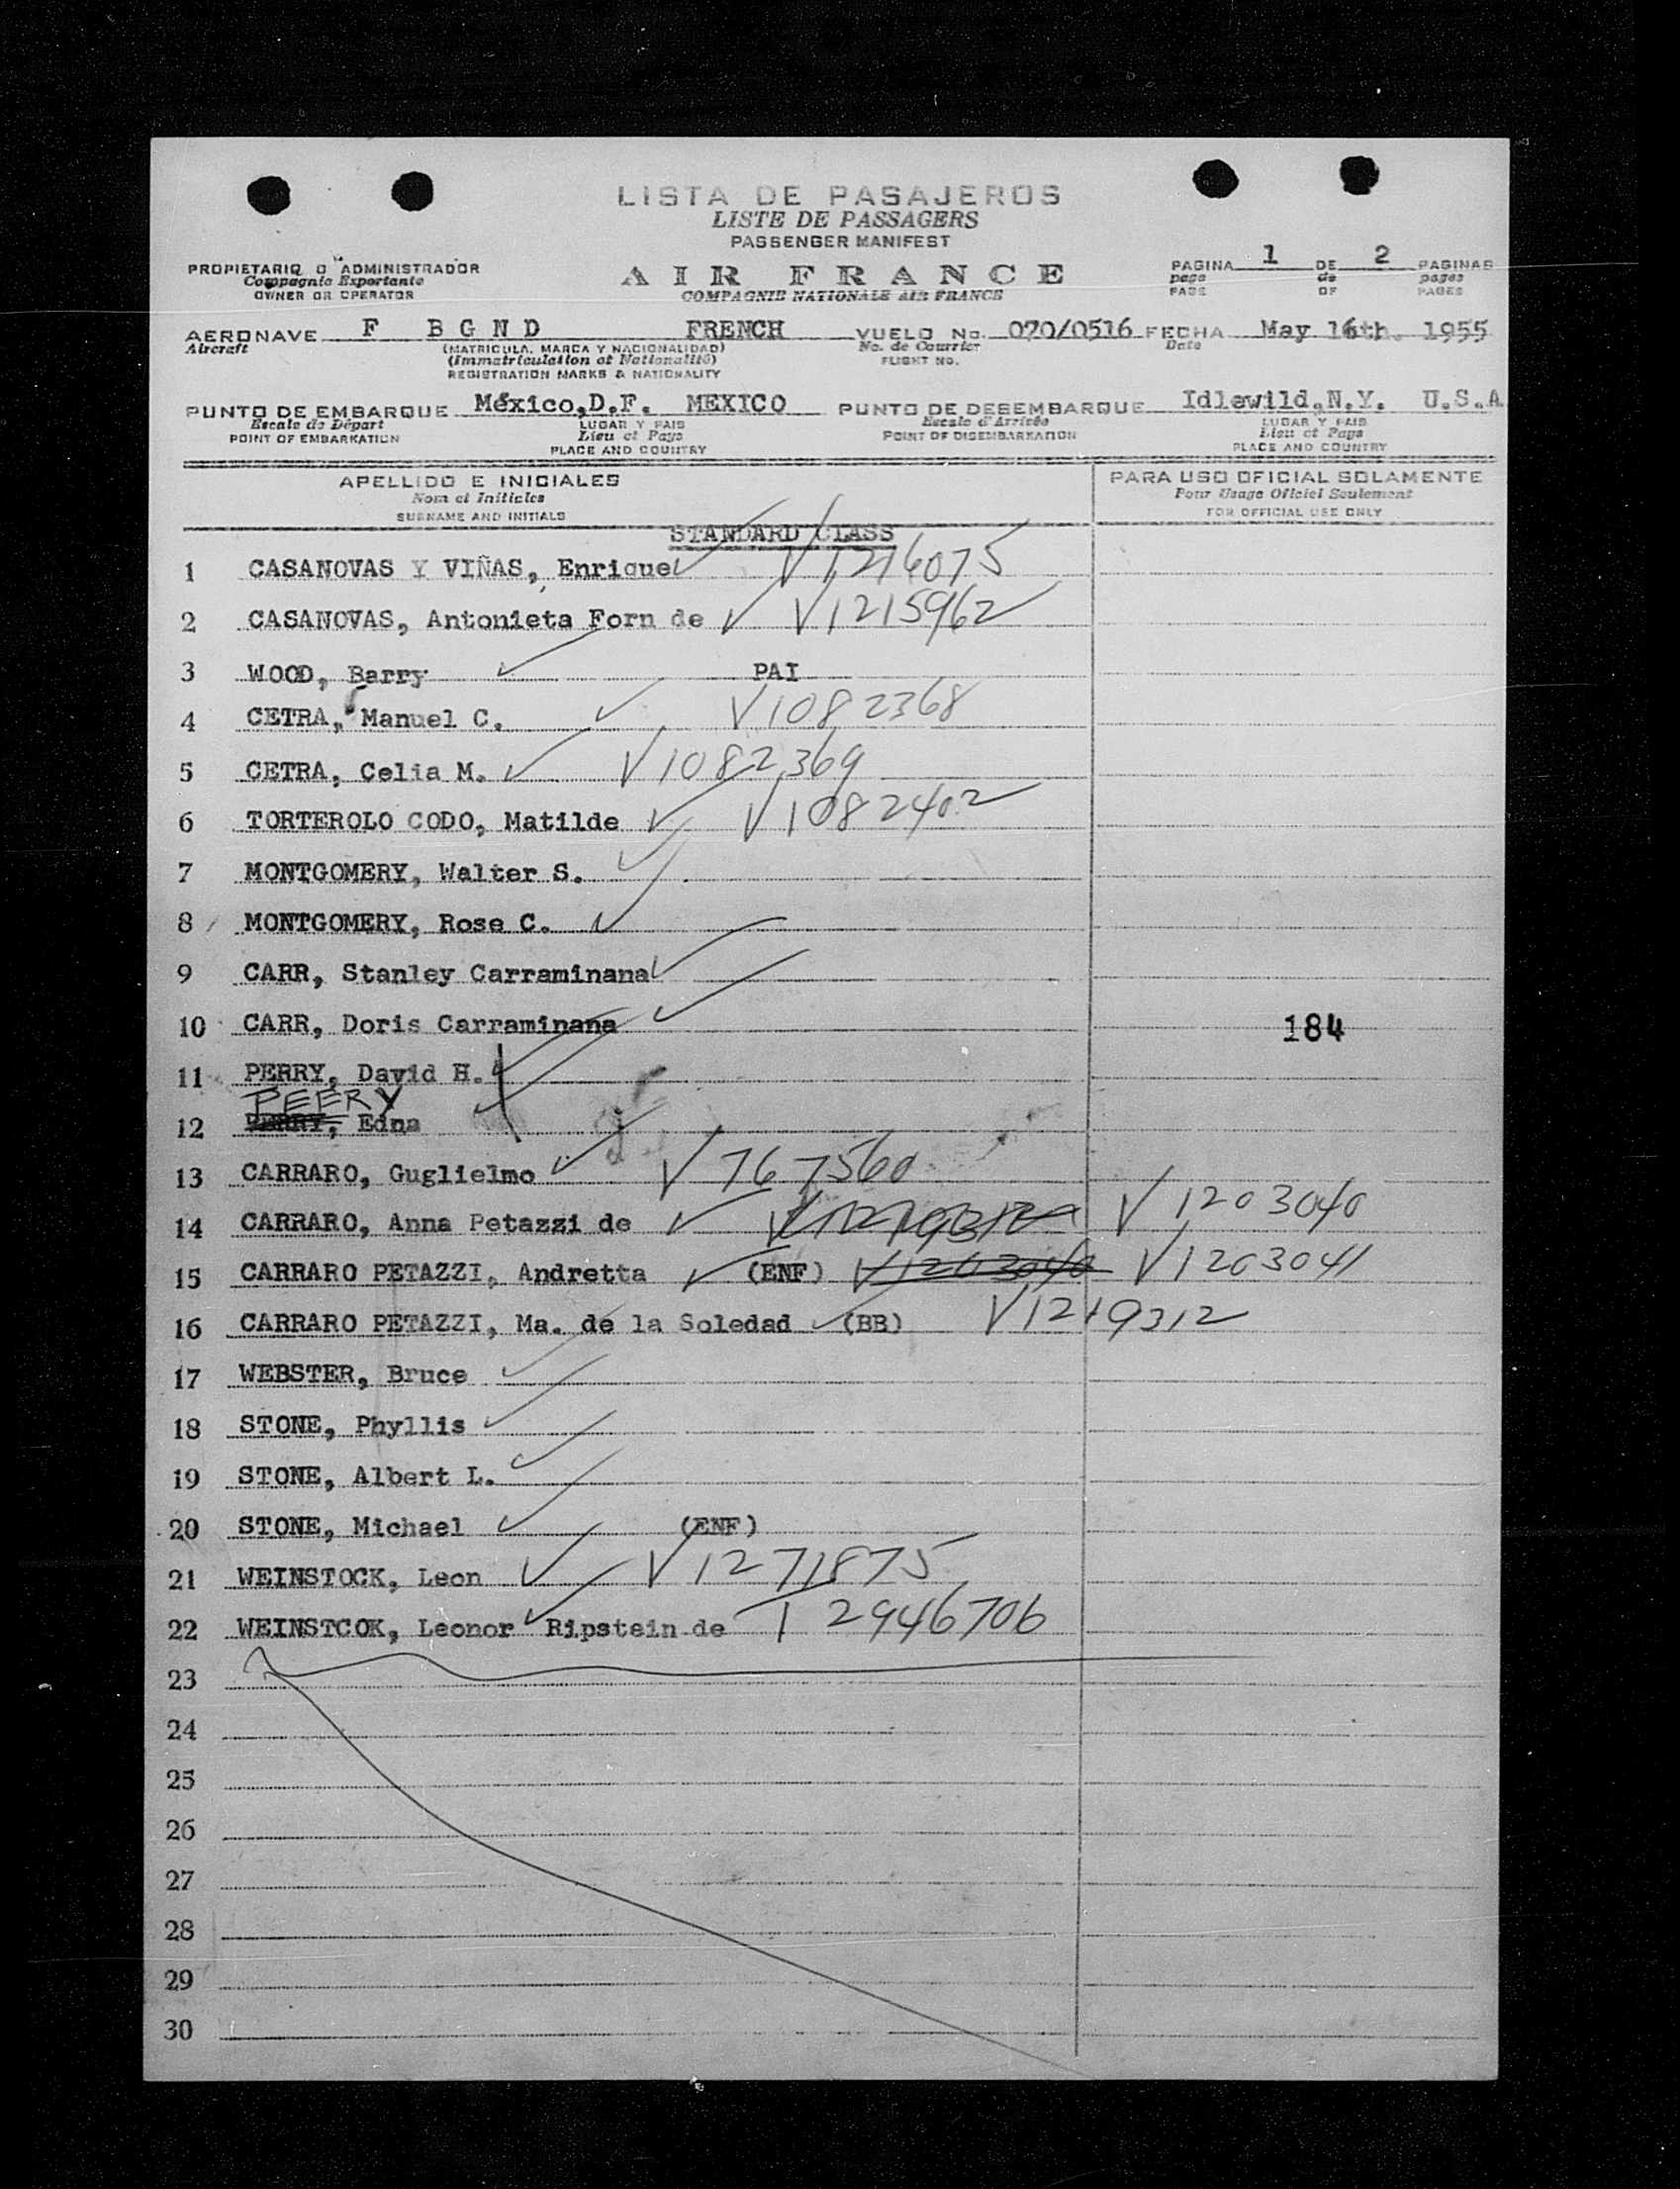 LISTA DE PASAJEROS
LISTE DE PASSAGERS
PASSENGER MANIFEST
PROPIETARIO O ADMINISTRADOR
Compagnie Exportante
OWNER OR OPERATOR
AIR FRANCE
COMPAGNIE NATIONALE AIR FRANCE
PAGINA 1 DE 2 PAGINAS
page de pages
PAGE OF PAGES
AERONAVE F BGND FRENCH VUELO No. 070/0516 FECHA May 16th. 1955
Aircraft (MATRICULA, MARCA Y NACIONALIDAD) No. de Courrier Date
(Immatriculation et Nationalité) FLIGHT NO.
REGISTRATION MARKS & NATIONALITY
PUNTO DE EMBARQUE México,D.F. MEXICO PUNTO DE DESEMBARQUE Idlewild,N.Y. U.S.A
Escale de Départ LUGAR Y PAIS Escale d'Arrivée LUGAR Y PAIS
POINT OF EMBARKATION Lieu et Pays POINT OF DISEMBARKATION Lieu et Pays
PLACE AND COUNTRY PLACE AND COUNTRY
APELLIDO E INICIALES PARA USO OFICIAL SOLAMENTE
Nom et Initiales Pour Usage Officiel Seulement
SURNAME AND INITIALS FOR OFFICIAL USE ONLY
STANDARD CLASS
1 CASANOVAS Y VIÑAS, Enrique V1216075
2 CASANOVAS, Antonieta Forn de V1215962
3 WOOD, Barry PAI
4 CETRA, Manuel C. V1082368
5 CETRA, Celia M. V1082369
6 TORTEROLO CODO, Matilde V1082402
7 MONTGOMERY, Walter S.
8 MONTGOMERY, Rose C.
9 CARR, Stanley Carraminana
10 CARR, Doris Carraminana 184
11 PERRY, David H.
PEERY
12 PERRY, Edna
13 CARRARO, Guglielmo V767560
14 CARRARO, Anna Petazzi de V1219312 V1203040
15 CARRARO PETAZZI, Andretta (ENF) V1203040 V1203041
16 CARRARO PETAZZI, Ma. de la Soledad (BB) V1219312
17 WEBSTER, Bruce
18 STONE, Phyllis
19 STONE, Albert L.
20 STONE, Michael (ENF)
21 WEINSTOCK, Leon V1271875
22 WEINSTCOK, Leonor Ripstein de T 2946706
23
24
25
26
27
28
29
30